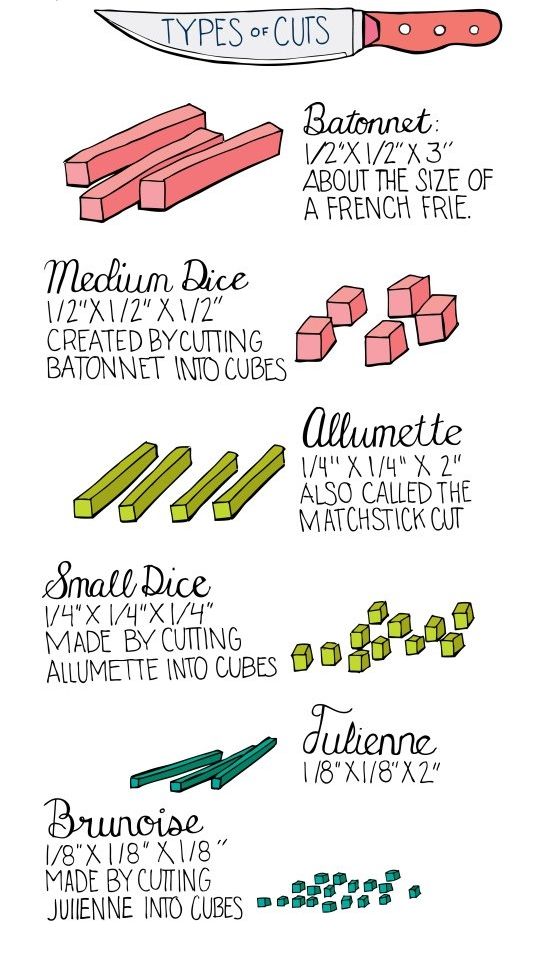 TYPES OF CUTS
Batonnet:
1/2"X1/2" X 3"
ABOUT THE SIZE OF
A FRENCH FRIE.
Medium Dice
1/2"X1/2" X 1/2"
CREATED BY CUTTING
BATONNET INTO CUBES
Allumette
1/4" X 1/4" X 2"
ALSO CALLED THE
MATCHSTICK CUT
Small Dice
1/4" X 1/4"X 1/4"
MADE BY CUTTING
ALLUMETTE INTO CUBES
Julienne
1/8"X1/8"X2"
Brunoise
1/8"X 1/8" X 1/8"
MADE BY CUTTING
JULIENNE INTO CUBES